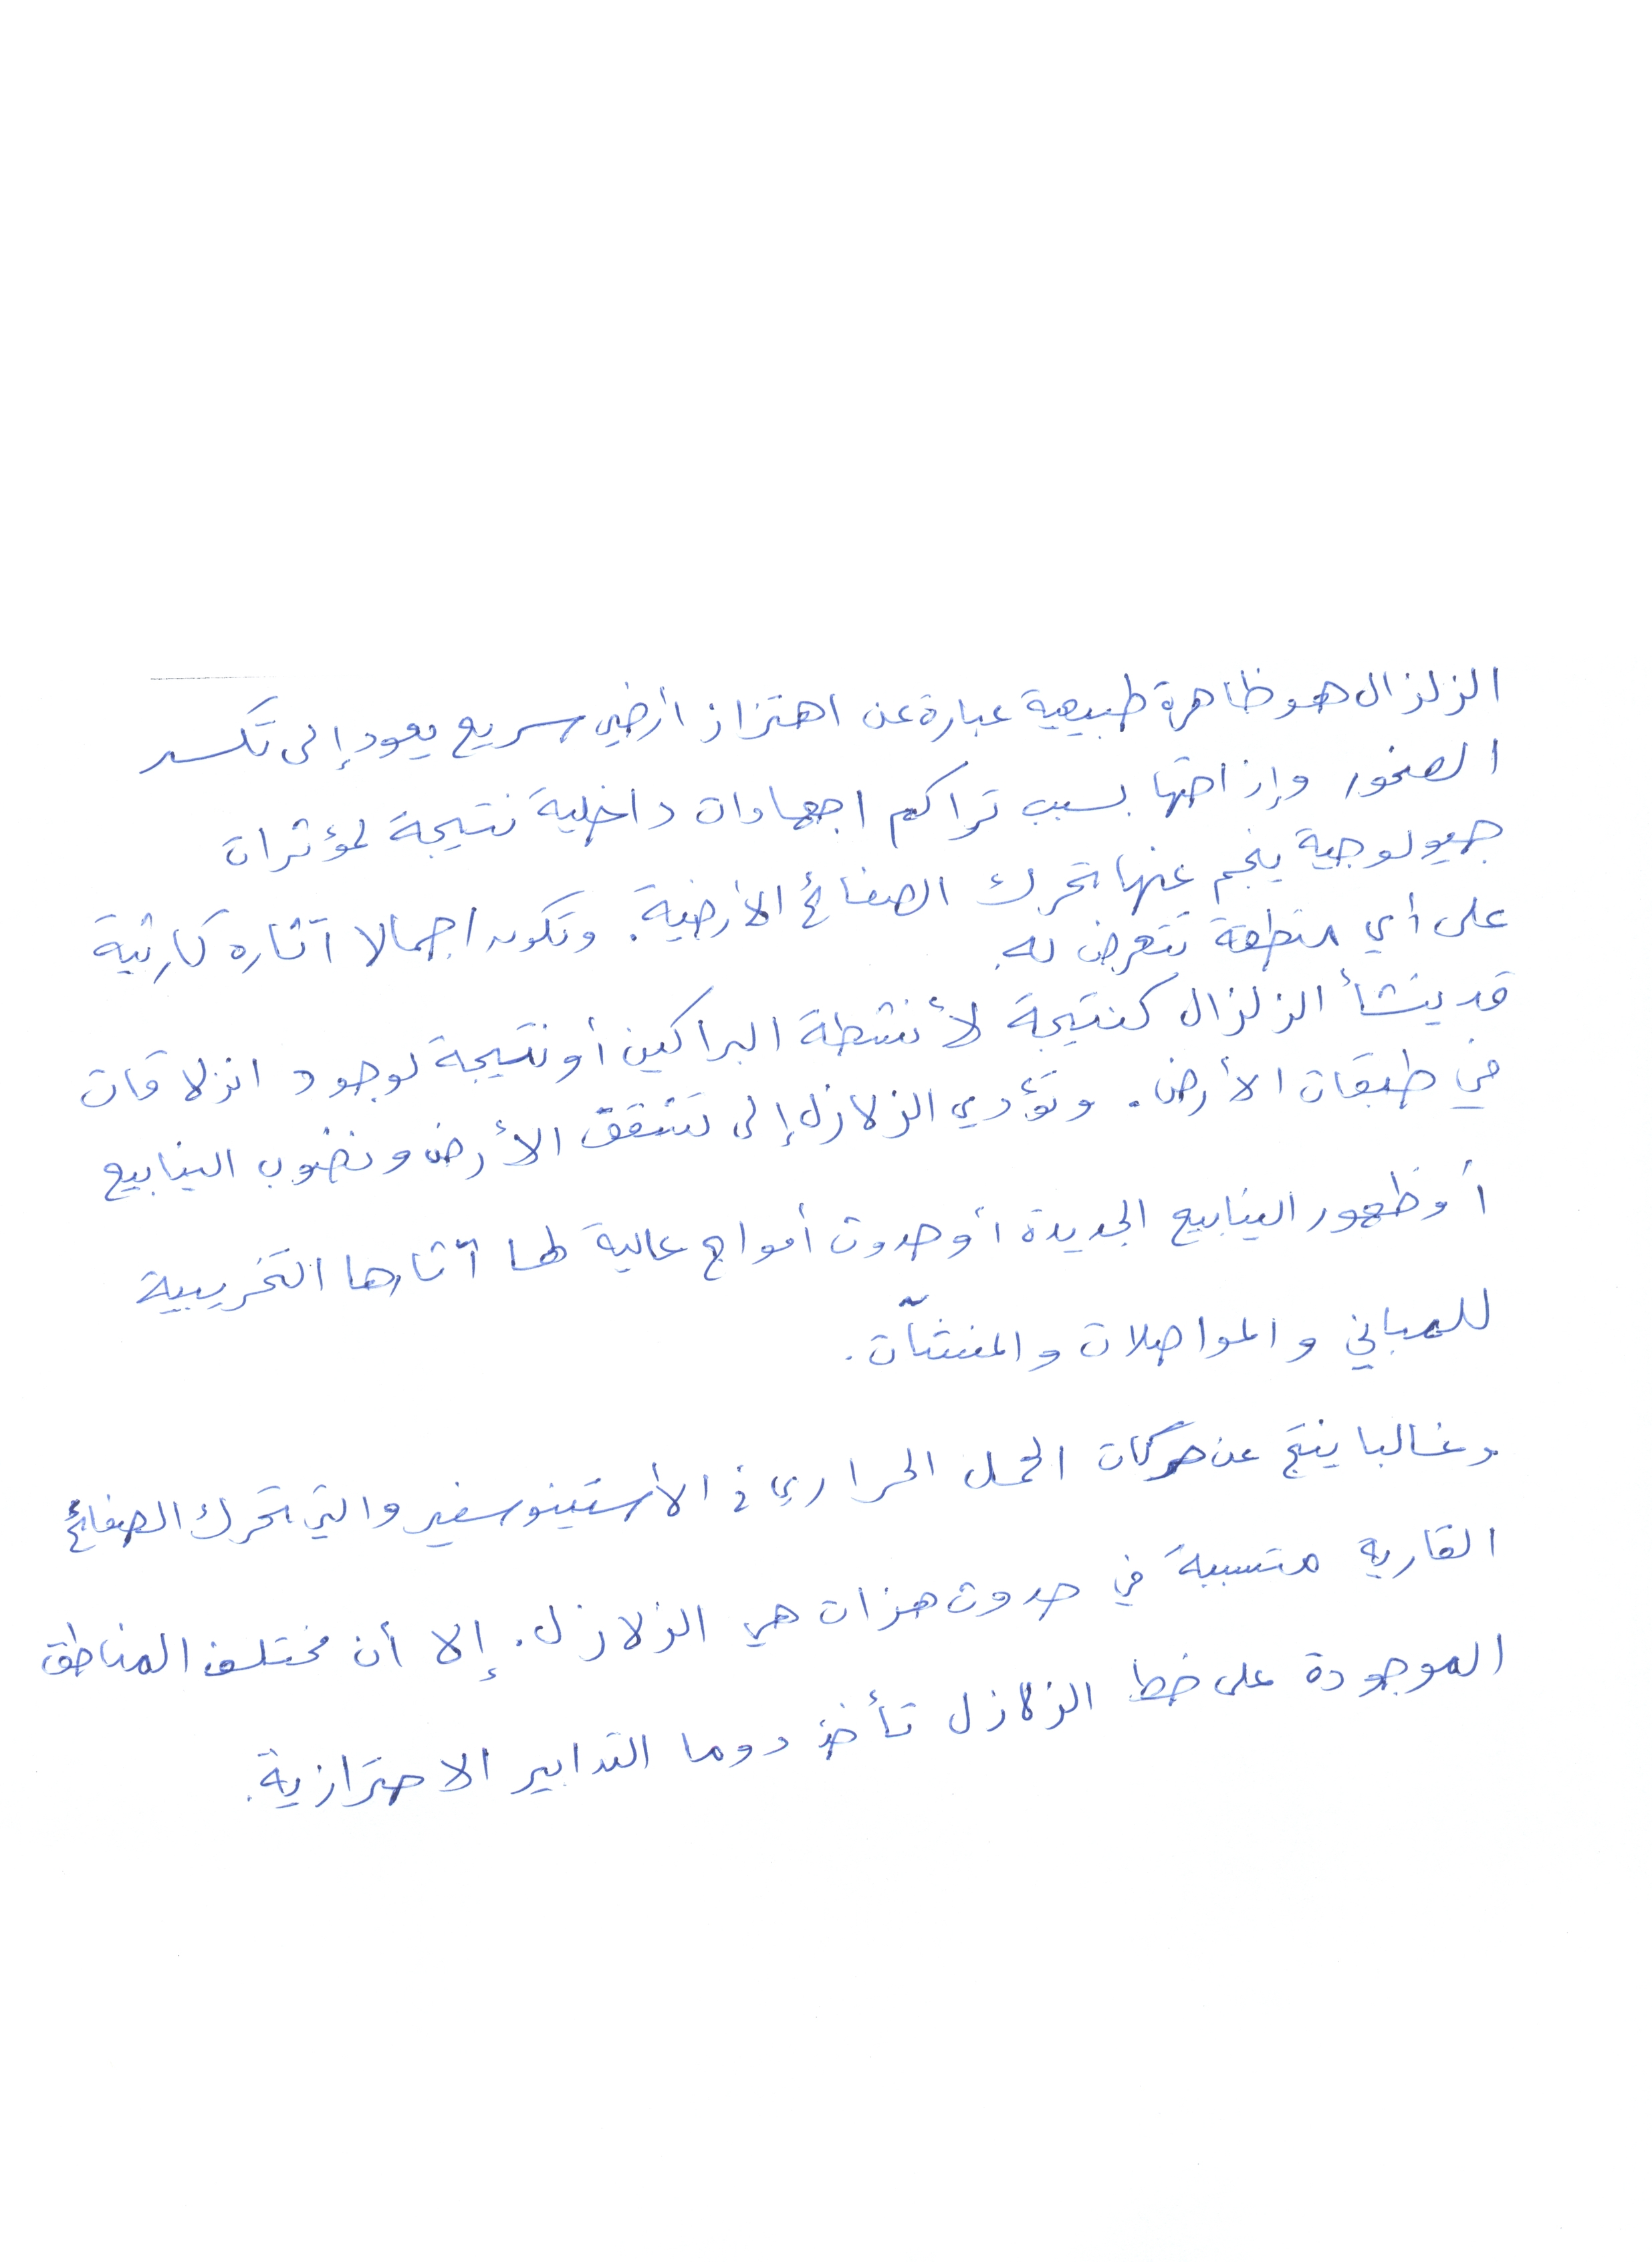 الزلزال هو ظاهرة طبيعية عبارة عن اهتزاز أرضي سريع يعود إلى تكسر
الصخور وإزاحتها بسبب تراكم اجهادات داخلية نتيجة لمؤثرات
جيولوجية ينجم عنها تحرك الصفائح الأرضية. وتكون اجمالا آثاره كارثية
على أي منطقة تتعرض له.
قد ينشأ الزلزال كنتيجة لأنشطة البراكين أو نتيجة لوجود انزلاقات
في طبقات الأرض. وتؤدي الزلازل إلى تشقق الأرض ونضوب الينابيع
أو ظهور الينابيع الجديدة أو حدوث أمواج عالية لها آثارها التخريبية
للمباني والمواصلات والمنشآت.
وغالبا ينتج عن حركات الحمل الحراري في الأستينوسفير والتي تحرك الصفائح
القارية متسببة في حدوث هزات هي الزلازل. إلا أن مختلف المناطق
الموجودة على خط الزلازل تأخذ دوما التدابير الاحترازية.